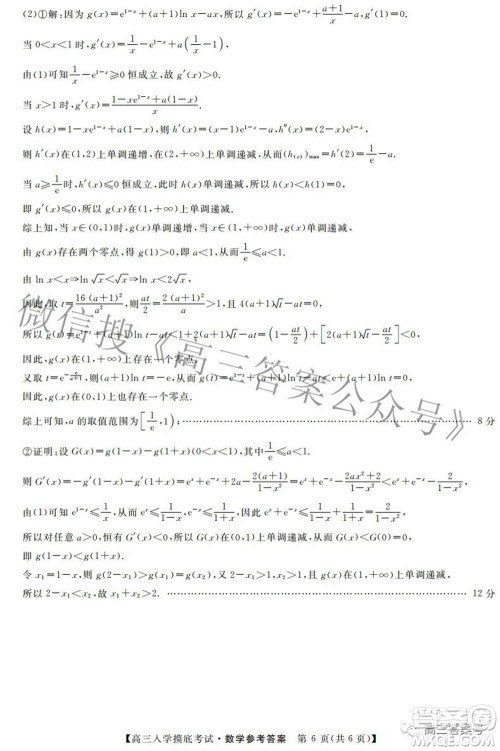 (2)①解:因为g(x)=e^{1-x}+(a+1)ln x-ax,所以g'(x)=-e^{1-x}+\frac{a+1}{x}-a.
当0<x<1时,g'(x)=\frac{1}{x}-e^{1-x}+a(\frac{1}{x}-1),
由(1)可知\frac{1}{x}-e^{1-x}≥0恒成立,故g'(x)>0.
当x>1时,g'(x)=\frac{1-xe^{1-x}+a(1-x)}{x}.
设h(x)=1-xe^{1-x}+a(1-x),则h'(x)=(x-1)e^{1-x}-a,h''(x)=(2-x)e^{1-x},
则h'(x)在(1,2)上单调递增,在(2,+∞)上单调递减,从而(h_{(x)})_{max}=h'(2)=\frac{1}{e}-a.
当a≥\frac{1}{e}时,h'(x)≤0恒成立,即h(x)在(1,+∞)上单调递减,则h(x)<h(1)=0,
即g'(x)<0,所以g(x)在(1,+∞)上单调递减.
综上知,当x∈(0,1)时,g(x)单调递增,当x∈(1,+∞)时,g(x)单调递减,
由g(x)存在两个零点,得g(1)=1-a>0,即a<1,从而\frac{1}{e}≤a<1.
由ln x<x⇒ln\sqrt{x}<\sqrt{x}⇒ln x<2\sqrt{x}.
因此,取t=\frac{16(a+1)^2}{a^2},则\frac{at}{2}=\frac{2(a+1)^2}{a}>1,且4(a+1)\sqrt{t}-at=0,
所以g(t)=e^{1-t}+(a+1)ln t-at<1+2(a+1)\sqrt{t}-at=(1-\frac{at}{2})+[2(a+1)\sqrt{t}-\frac{at}{2}]<0,
因此,g(x)在(1,+∞)上存在一个零点.
因此,g(x)在(0,1)上存在一个零点.
综上可知,a的取值范围为[\frac{1}{e},1); 8分
②证明:设G(x)=g(1-x)-g(1+x)(0<x<1),其中\frac{1}{e}≤a<1.
则G'(x)=-g'(1-x)-g'(1+x)=e^x+e^{-x}+2a-\frac{2(a+1)}{1-x^2}=e^x+e^{-x}-\frac{2ax^2+2}{1-x^2}<e^x+e^{-x}-\frac{2}{1-x^2},
所以对任意a>0,恒有G'(x)<0,所以G(x)在(0,1)上单调递减,从而G(x)<G(0)=0,
即g(1-x)<g(1+x).
令x_1=1-x,则g(2-x_1)>g(x_1)=g(x_2),又2-x_1>1,x_2>1,且g(x)在(1,+∞)上单调递减,
所以2-x_1<x_2,故x_1+x_2>2. 12分
微信搜《高三答案公众号》
【高三入学摸底考试·数学参考答案 第6页(共6页)】
高三答案号